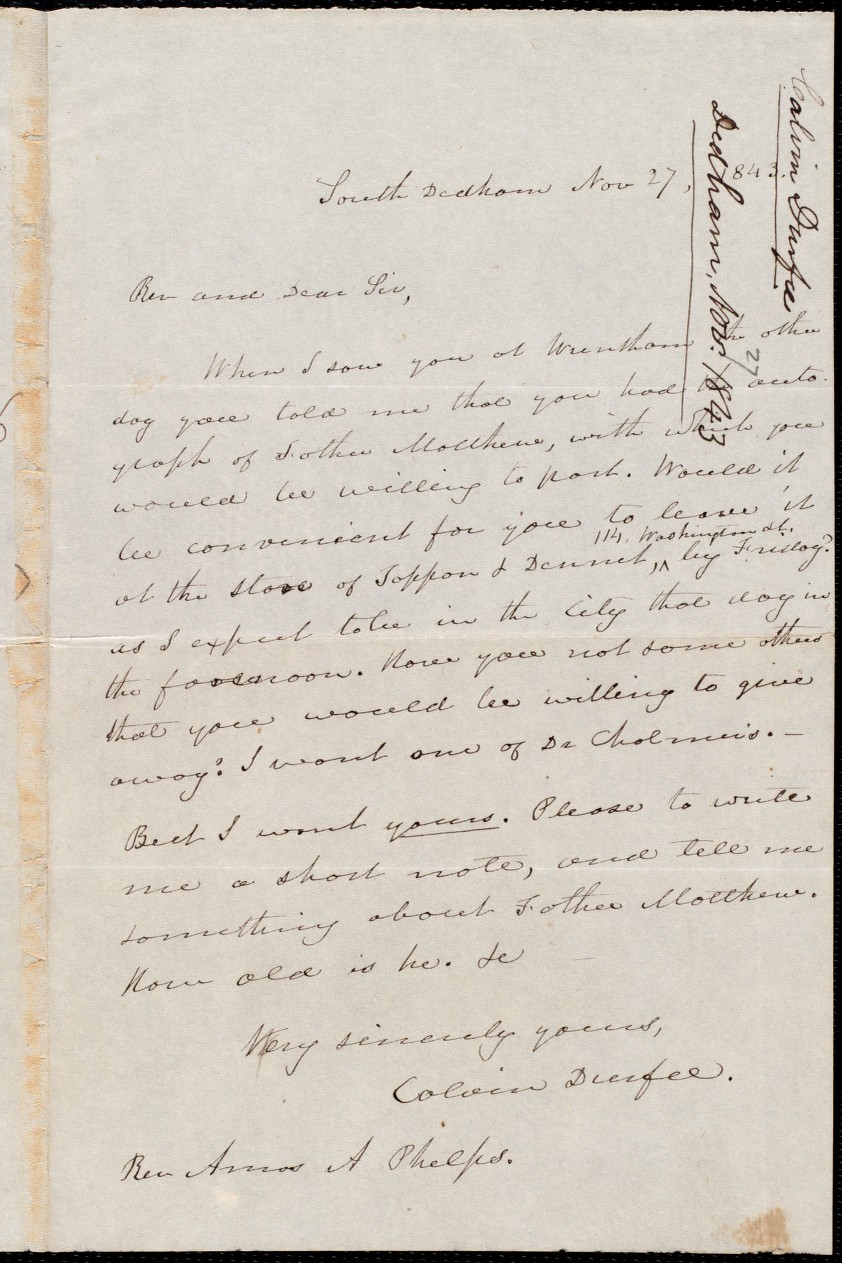 South Dedham Nov 27, 1843.
Rev and Dear Sir,
When I saw you at Wrentham the other
day you told me that you had an auto-
graph of Father Matthew, with which you
would be willing to part. Would it
be convenient for you to leave it
at the store of Tappan & Dennet, ^ 114. Washington St. by Friday?
as I expect to be in the City that day in
the forenoon. Have you not some others
that you would be willing to give
away? I want one of Dr Chalmers. —
But I want yours. Please to write
me a short note, and tell me
something about Father Matthew.
How old is he. &c
Very sincerely yours,
Calvin Durfee.
Rev Amos A Phelps.
Calvin Durfee
Dedham, Nov. 1843
27